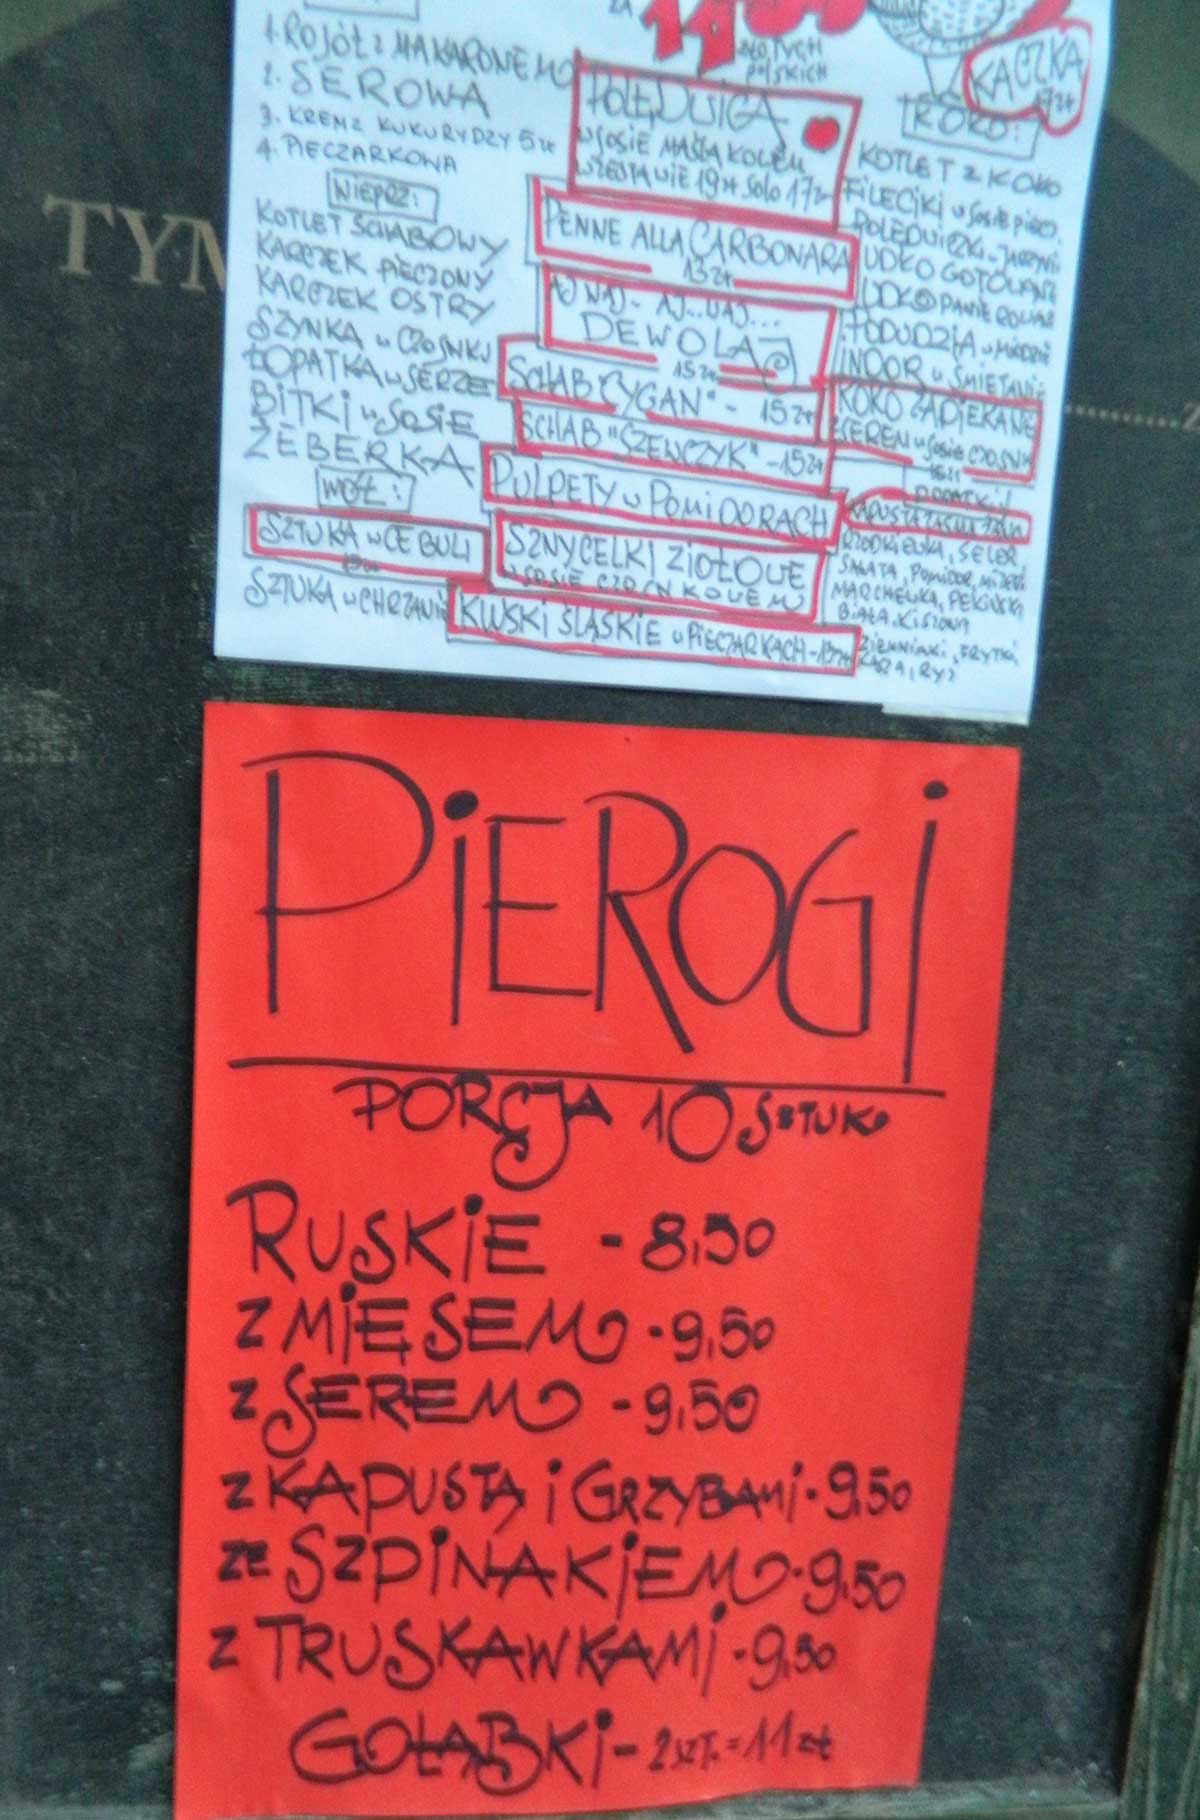 ZŁOTYCH
POLSKICH
KACZKA
17 zł
1. ROSÓŁ Z MAKARONEM
2. SEROWA
3. KREM Z KUKURYDZY 5 zł
4. PIECZARKOWA
WIEPRZ:
KOTLET SCHABOWY
KARCZEK PIECZONY
KARCZEK OSTRY
SZYNKA W CZOSNKU
ŁOPATKA W SERZE
BITKI W SOSIE
ŻEBERKA
WÓŁ:
SZTUKA W CEBULI
SZTUKA W CHRZANIE
POLĘDWICA
W SOSIE MAŚLAKOWYM
W ZESTAWIE 19 zł SOLO 17 zł
PENNE ALLA CARBONARA
13 zł
AJ WAJ.. AJ...WAJ...
DEWOLAJ
15 zł
SCHAB "CYGAN" - 15 zł
SCHAB "SZEWCZYK" - 15 zł
PULPETY W POMIDORACH
SZNYCELKI ZIOŁOWE
W SOSIE CZOSNKOWEM
KLUSKI ŚLĄSKIE W PIECZARKACH - 13 zł
KOKO:
KOTLET Z KOKO
FILECIKI W SOSIE PIECZ.
POLĘDWICZKI W JARZYN
UDKO GOTOWANE
UDKO PANIEROWAN
PODUDZIA W MIODZIE
INDOR W ŚMIETANIE
KOKO ZAPIEKANE
Z SEREM W SOSIE CZOSNK
DODATKI:
KAPUSTA ZASMAŻANA
RZODKIEWKA, SELER
SAŁATA, POMIDOR, MIZERI
MARCHEWKA, PEKIŃSKA
BIAŁA, KISZONA
ZIEMNIAKI, FRYTKI,
KASZA, RYŻ
TYM
PIEROGI
PORCJA 10 SZTUK
RUSKIE - 8,50
Z MIĘSEM - 9,50
Z SEREM - 9,50
Z KAPUSTĄ I GRZYBAMI - 9,50
ZE SZPINAKIEM - 9,50
Z TRUSKAWKAMI - 9,50
GOŁĄBKI - 2 SZT. = 11 zł